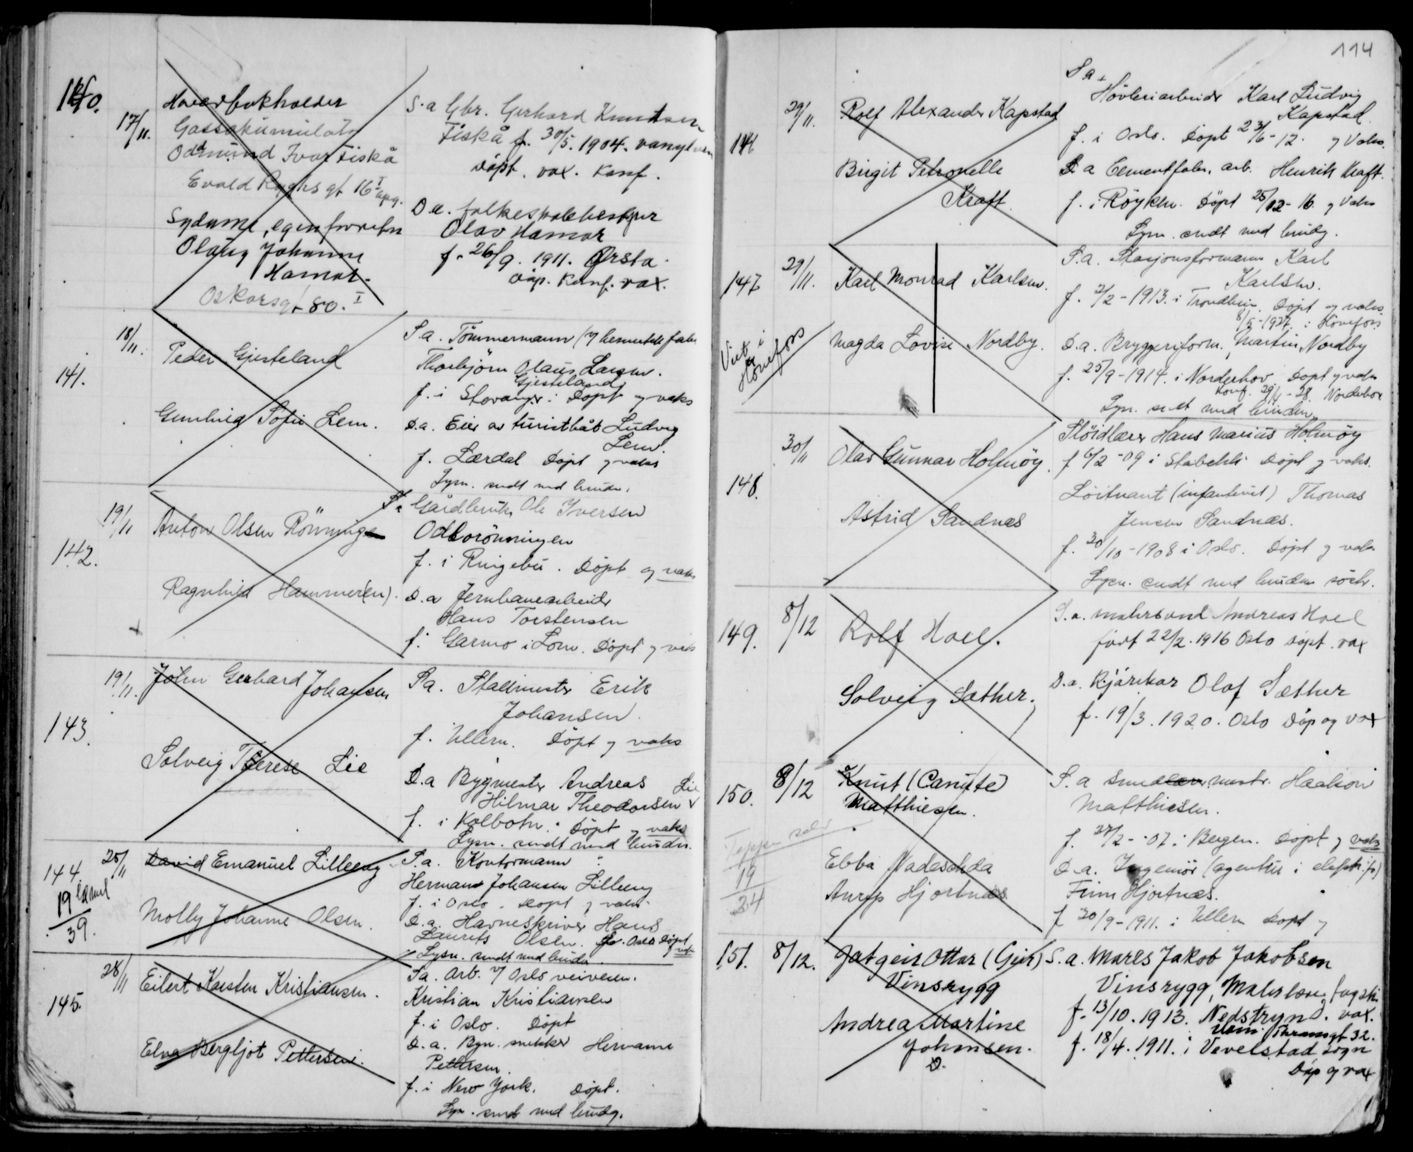 140.
17/11.
Hovedbokholder
Gassakumulator
Odmund Ivar Fiskå
Evald Ryghs gt 16 I
Sydame, egen forretn
Olaug Johanne
Hamar.
Oskarsgt 80. I
S.a Gbr. Gerhard Knudsen
Fiskå f. 30/5. 1904.
døpt. vax. Konf.
D a. folkeskolebestyrer
Olav Hamar
f. 26/9. 1911. Ørsta.
Døp. Konf. vax.
141.
18/11.
Peder Gjesteland
Gunhild Sofie Lem.
S a. Tømmermann
Thorbjörn Olaus Larsen.
Gjesteland
f. i Stavanger. Døpt og vaks
D.a. Eier av turistbåt Ludvig
Lem.
f. Lærdal Døpt g vaks
Lysn. sendt med bruden.
142.
19/11
Anton Olsen Rönninge
Ragnhild Hammer(en).
S.a. Gårdbruker Ole Iversen
Odlorönningen
f. i Ringebu. Døpt og vaks
D.a Jernbanearbeider
Hans Torstensen
f. Garmo i Lom. Døpt g vaks
143.
19/11.
John Gerhard Johansen
Solveig Therese Lie
S.a. Stallmester Erik
Johansen.
f. Ullern. Døpt g vaks
D.a Bygmester Andreas Lie
Hilmar Theodorsen
f. i Kolbotn. Døpt g vaks
Lysn. sendt med bruden.
144.
25/11
19
39.
David Emanuel Lilleeng
Molly Johanne Olsen.
S.a. Kontormann
Herman Johansen Lilleeng
f. i Oslo. Døpt g vaks.
D.a. Havneskriver Hans
Laurits Olsen. f. Oslo Døpt
g vaks
Lysn. sendt med bruden.
145.
28/11
Eilert Karsten Kristiansen.
Elna Bergljot Pettersen.
S.a. Arb. v/ Oslo veivesen.
Kristian Kristiansen
f. i Oslo. Døpt
D.a. Byn. snekker Hermann
Pettersen.
f. i New York. Døpt.
Lysn. sendt med brudg.
114
29/11.
Rolf Alexander Kapstad
Birgit Petronelle
Kraft.
S a.
Høvleriarbeider Karl Ludvig
Kapstad.
f. i Oslo. Døpt 23/6-12. g Vaks.
D.a Cementfabr. arb. Henrik Kraft.
f. i Røyken. Døpt 25/12-16 g Vaks
Lysn. sendt med brudg.
147
29/11.
Viet i
Hönefoss
Karl Monrad Karlsen.
Magda Lovise Nordby.
S.a. Stasjonsformann Karl
Karlsen.
f. 2/2-1913. i Trondhjem Døpt og vaks.
i Hönefoss
D.a. Bryggeriform. Martin Nordby
f. 25/9-1914. i Norderhov Døpt g vaks
Norderhov
Lysn. sendt med bruden.
148.
30/11
Olav Gunnar Holmøy.
Astrid Sandnes
Sløidlærer Hans Marius Holmøy
f 6/2-09 i Stabekk Døpt g vaks.
Löitnant (infanteriet) Thomas
Jensen Sandnæs.
f. 20/10-1908 i Oslo. Døpt g vaks
Lysn. sendt med bruden
149.
8/12
Rolf Hoel.
Solveig Sæther.
S.a. Andreas Hoel
født 22/2. 1916 Oslo døpt. vax
D.a. Kjørekar Olaf Sæther
f. 19/3. 1920. Oslo Døp og vax
150.
8/12
19
34
Knut (Canute)
Matthiesen.
Ebba Nadeschda
Hjortnæs
S.a Haakon
Matthiesen.
f. 27/2-07 i Bergen. Døpt g vaks
D.a. Ingeniør (agentur i elektr.)
Finn Hjortnæs.
f 20/9-1911. i Ullern Døpt g
151.
8/12.
Jatgeir Ottar (Geir)
Vinsrygg
Andrea Martine
Johnsen.
D.
S.a. Mares Jakob Jakobsen
Vinsrygg,
f. 13/10. 1913. Nedstryn D. vax.
f. 18/4. 1911. i Vevelstad sogn
Døp og vax